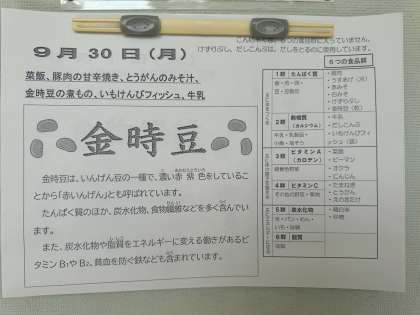 9月30日(月)
菜飯、豚肉の甘辛焼き、とうがんのみそ汁、
金時豆の煮もの、いもけんぴフィッシュ、牛乳
金時豆
金時豆は、いんげん豆の一種で、濃い赤紫色をしている
ことから「赤いんげん」とも呼ばれています。
たんぱく質のほか、炭水化物、食物繊維などを多く含んでい
ます。
また、炭水化物や脂質をエネルギーに変える働きがあるビ
タミンB₁やB₂、貧血を防ぐ鉄なども含まれています。
に入っていません。
けずりぶし、だしこんぶは、だしをとるのに使用しています。
6つの食品群
1群 たんぱく質
・豚肉
・うすあげ(冷)
・赤みそ
・白みそ
・けずりぶし
・金時豆(乾)
2群 無機質
(カルシウム)
・牛乳
・だしこんぶ
・いもけんぴフィッ
シュ(袋)
3群 ビタミンA
(カロテン)
緑黄色野菜
・菜飯
・ピーマン
・オクラ
・にんじん
4群 ビタミンC
・たまねぎ
・とうがん
・えのきたけ
5群 炭水化物
・精白米
・砂糖
6群 脂質